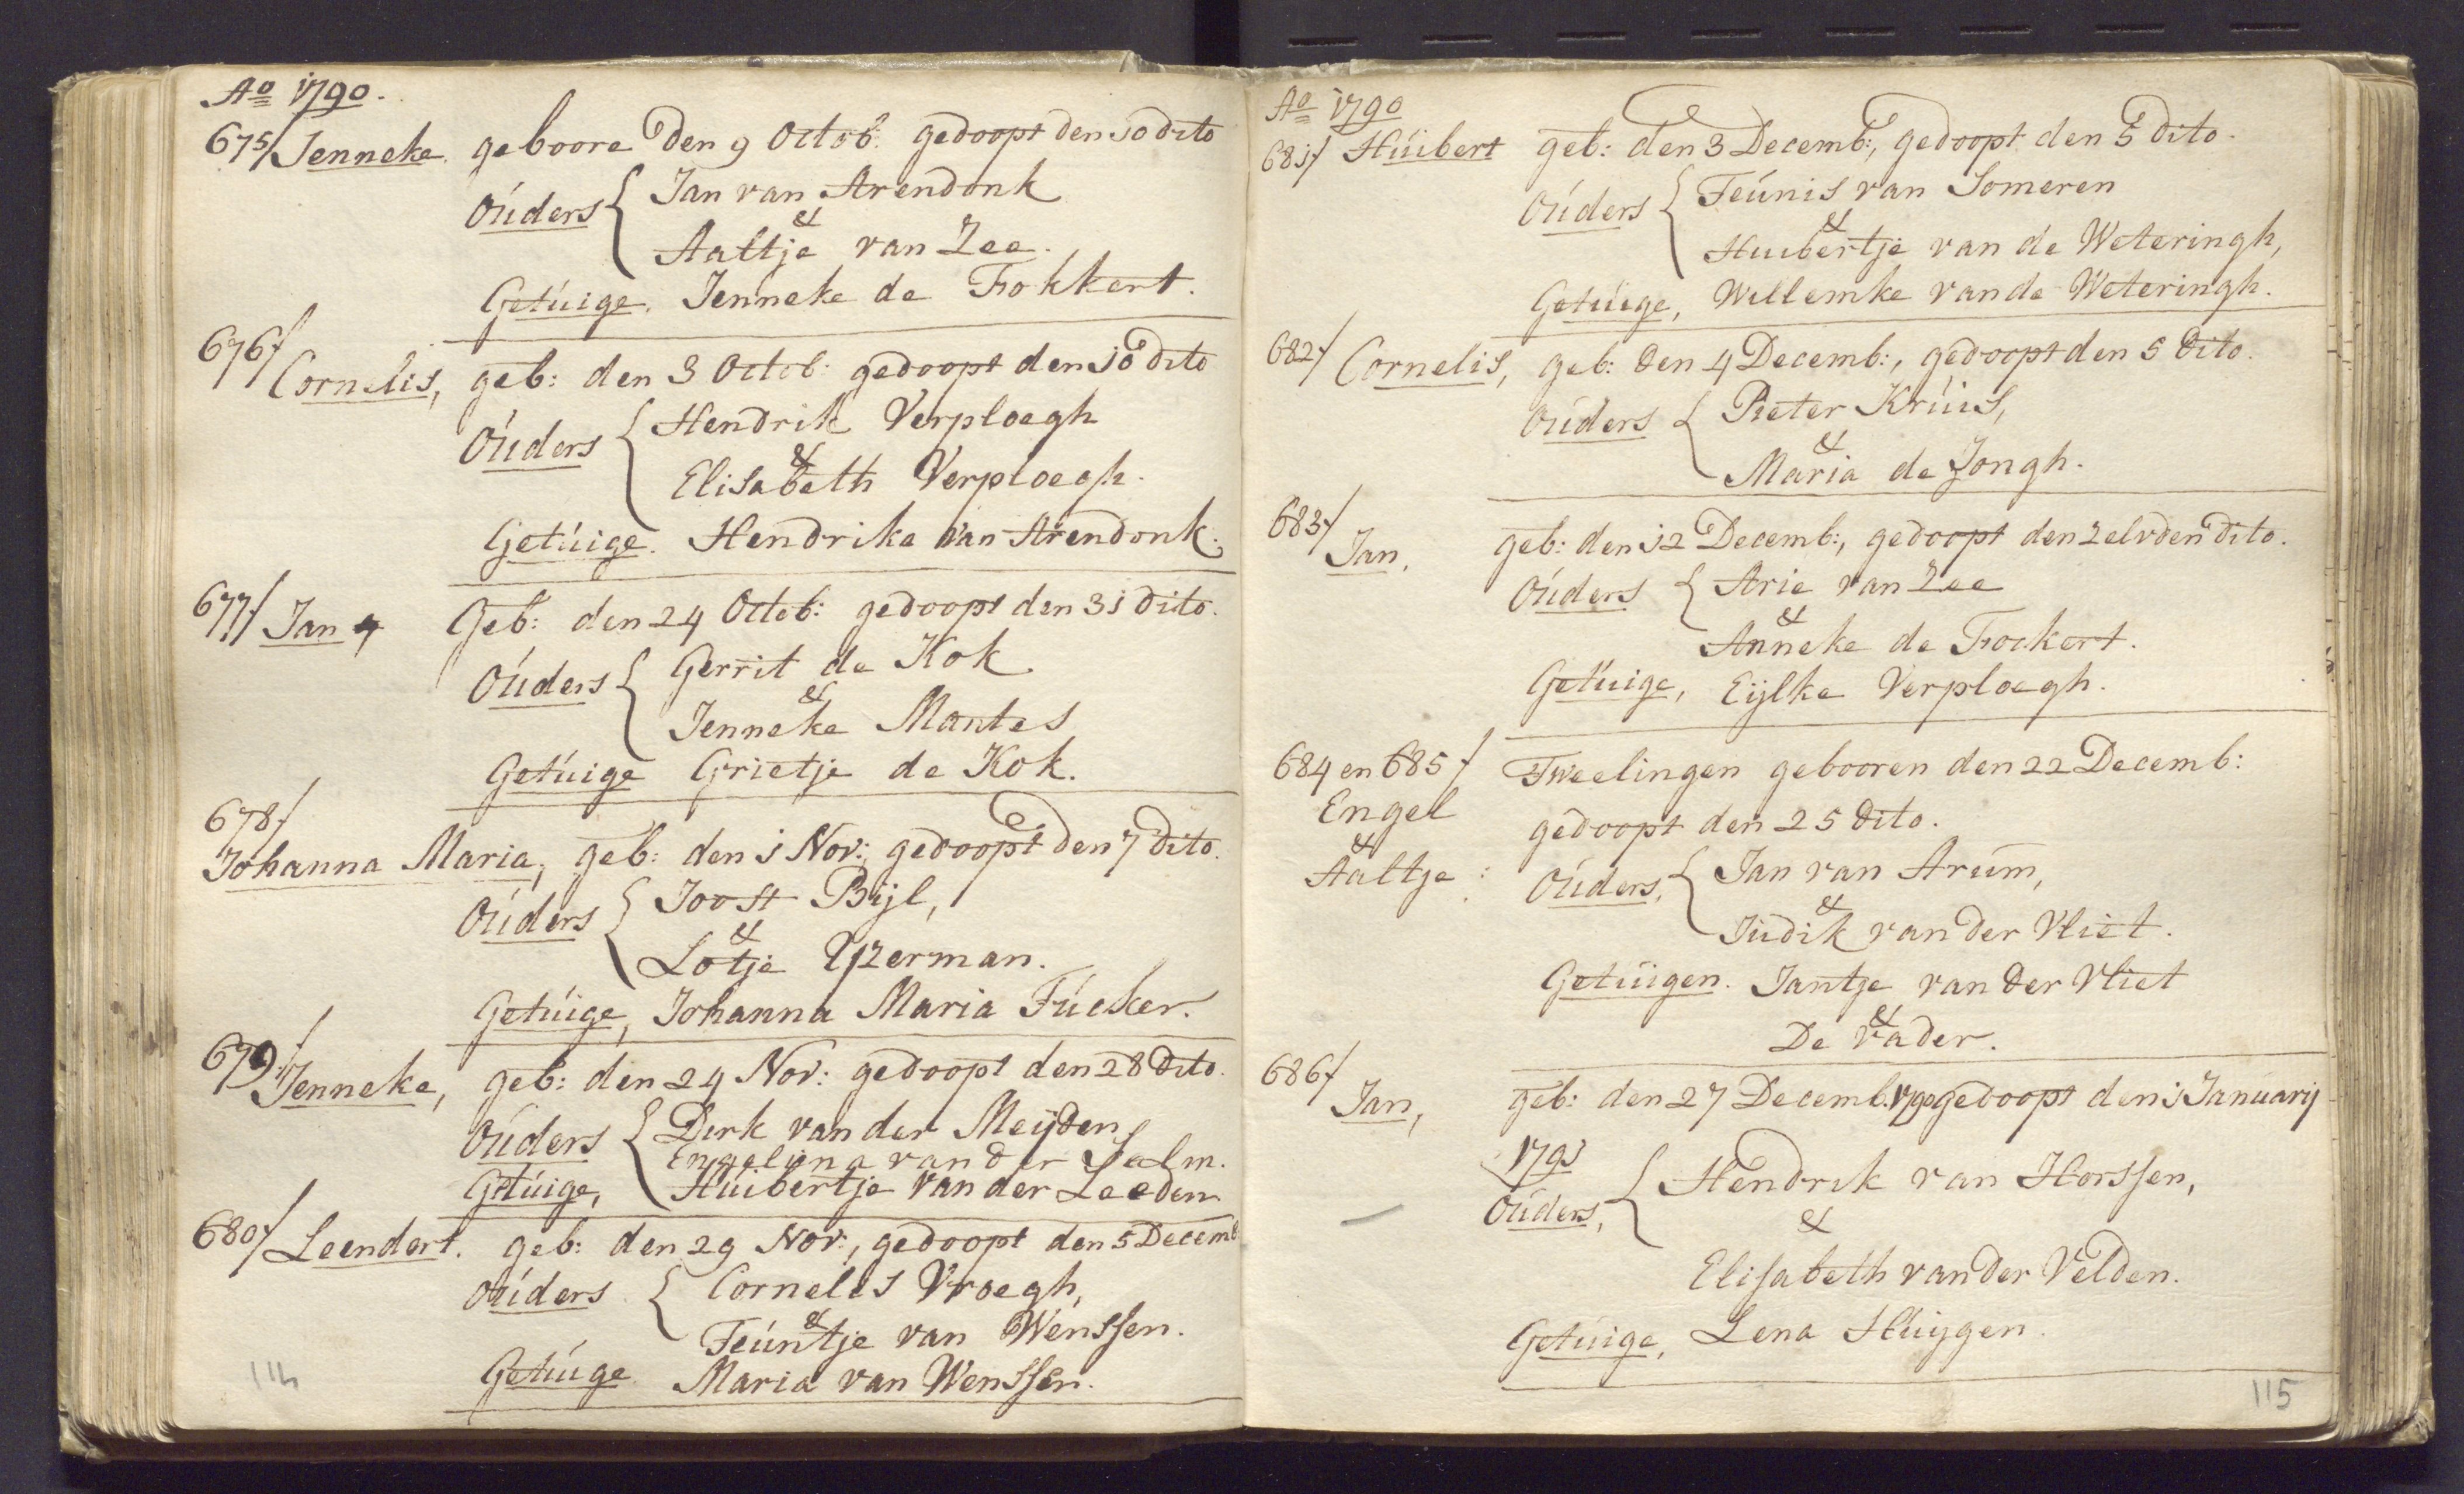 Ao 1790.
675/ Jenneke. geboore den 9 Octob: gedoopt den 10 dito
Ouders { Jan van Arendonk
&
Aaltje van Zee.
Getuige. Jenneke de Fokkert.
676/ Cornelis, geb: den 3 Octob: gedoopt den 10 dito
Ouders { Hendrik Verploegh
&
Elisabeth Verploegh.
Getuige. Hendrika van Arendonk.
677/ Jan Geb: den 24 Octob: gedoopt den 31 dito.
Ouders { Gerrit de Kok
&
Jenneke Mantes
Getuige Grietje de Kok.
678/
Johanna Maria, geb: den 1 Nov: gedoopt den 7 dito.
Ouders { Joost Bijl,
&
Lotje Yzerman.
Getuige, Johanna Maria Fucker.
679/ Jenneke, geb: den 24 Nov: gedoopt den 28 dito.
Ouders { Dirk van der Meijden
Engelina van der Salm.
Getuige, Huibertje van der Leeden
680/ Leendert. geb: den 29 Nov:, gedoopt den 5 Decemb
Ouders { Cornelis Vroegh,
&
Teuntje van Wenssen.
Getuige Maria van Wenssen.
114
Ao 1790
681/ Huibert geb: den 3 Decemb:, gedoopt den 5 dito.
Ouders { Teunis van Someren
&
Huibertje van de Weteringh,
Getuige, Willemke van de Weteringh.
682/ Cornelis, geb: den 4 Decemb:, gedoopt den 5 dito.
Ouders { Pieter Kruis,
&
Maria de Jongh.
683/ Jan, geb: den 12 Decemb:, gedoopt den zelvden dito.
Ouders { Arie van Zee
&
Anneke de Fockert.
Getuige, Eijlke Verploegh.
684 en 685/ Tweelingen gebooren den 22 Decemb:
Engel gedoopt den 25 dito.
&
Aaltje: Ouders, { Jan van Arum,
&
Judik van der Vliet.
Getuigen. Jantje van der Vliet
&
De Vader.
686/ Jan, geb: den 27 Decemb. 1790 gedoopt den 1 Januarij
1791
Ouders, { Hendrik van Horssen,
&
Elisabeth van der Velden.
Getuige, Lena Huijgen.
115